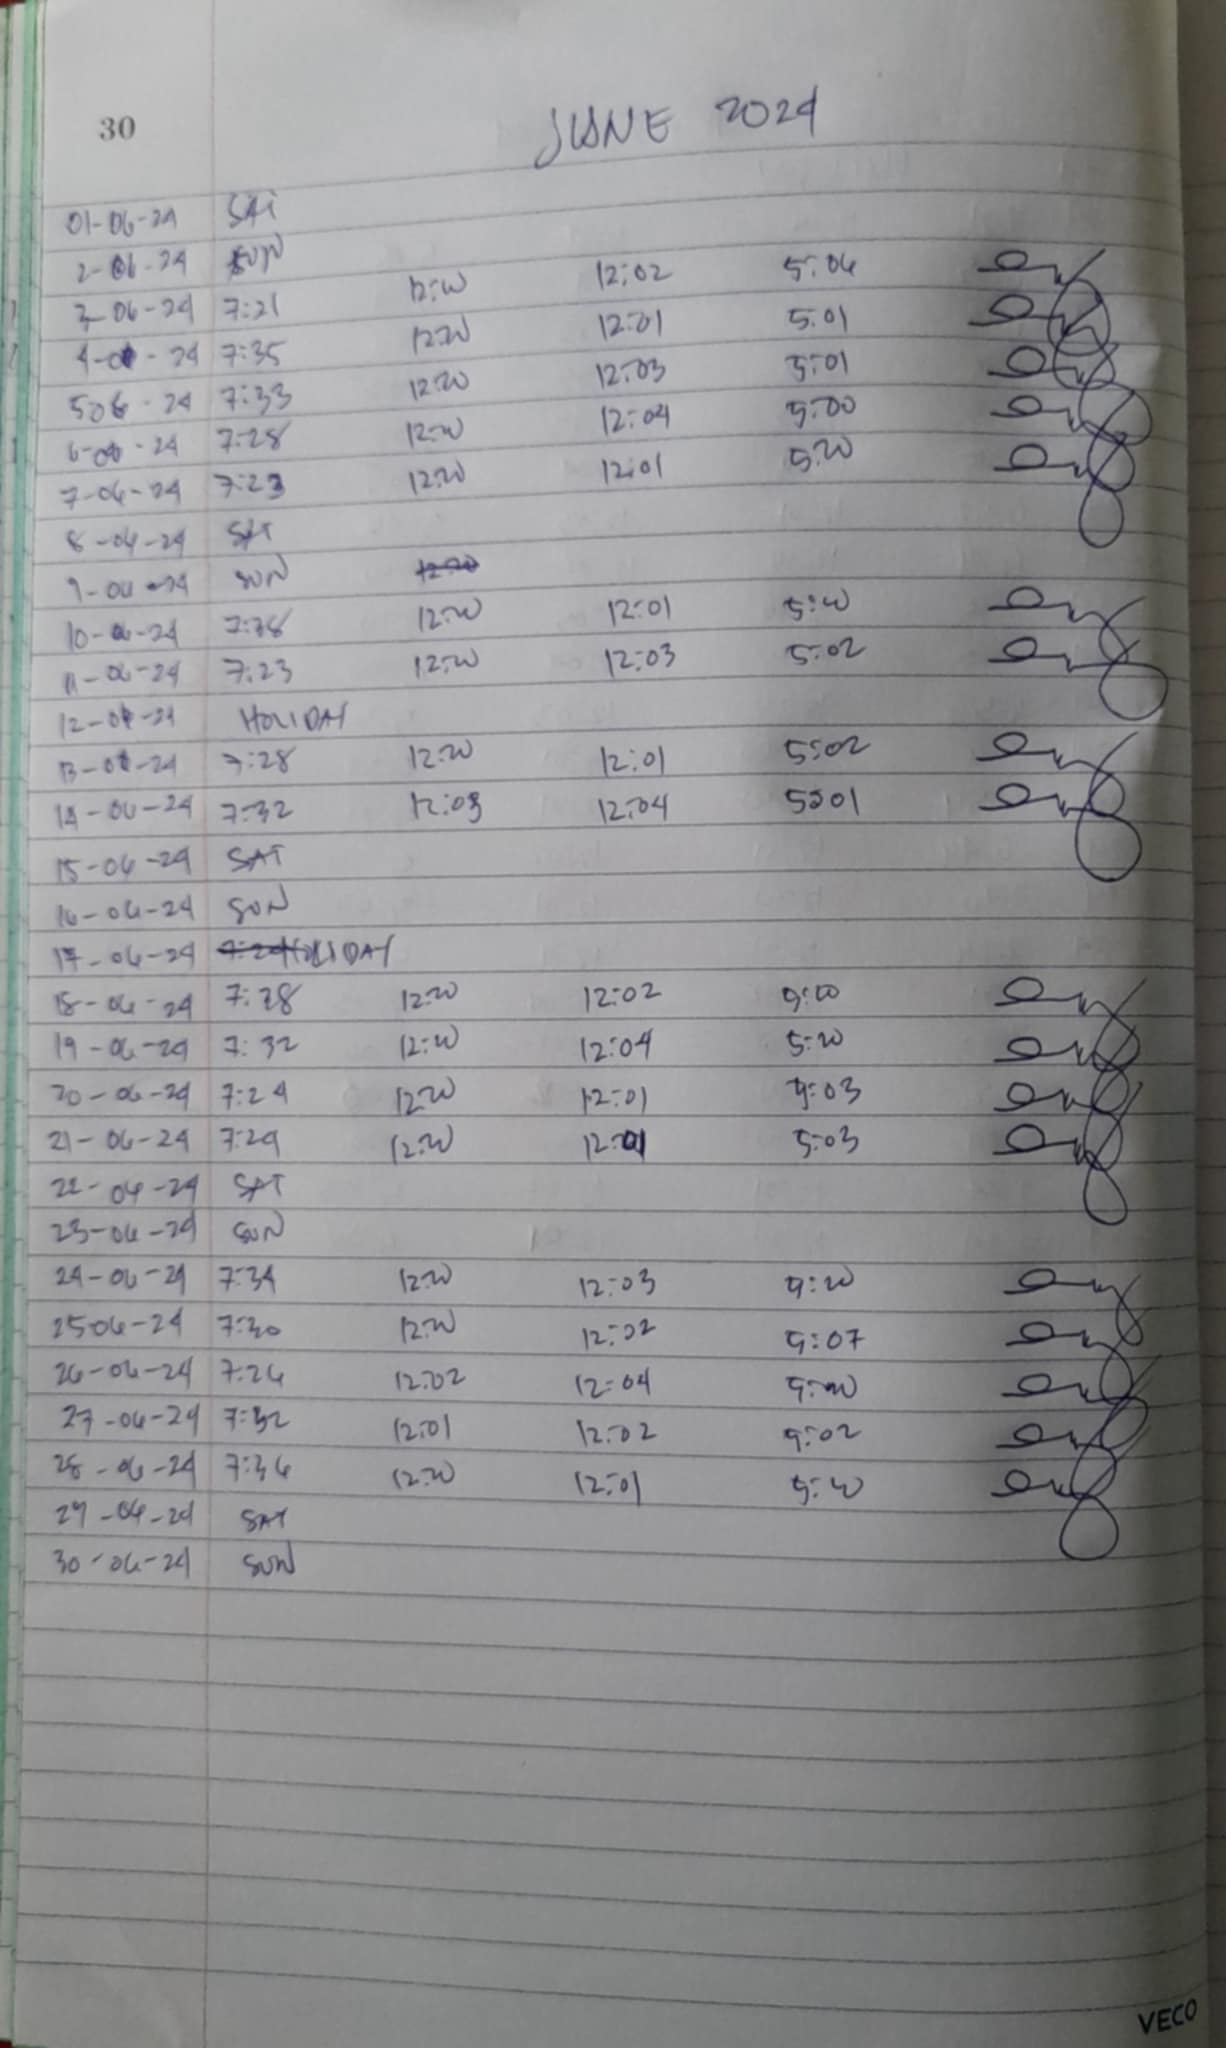 30
JUNE 2024
01-06-24 SAT
2-06-24 SUN
3-06-24 7:21 12:00 12:02 5:06
4-06-24 7:35 12:00 12:01 5:01
5-06-24 7:33 12:00 12:03 5:01
6-06-24 7:28 12:00 12:04 5:00
7-06-24 7:23 12:00 12:01 5:00
8-06-24 SAT
9-06-24 SUN 12:00
10-06-24 7:28 12:00 12:01 5:00
11-06-24 7:23 12:00 12:03 5:02
12-06-24 HOLIDAY
13-06-24 7:28 12:00 12:01 5:02
14-06-24 7:32 12:03 12:04 5:01
15-06-24 SAT
16-06-24 SUN
17-06-24 HOLIDAY
18-06-24 7:28 12:00 12:02 5:00
19-06-24 7:32 12:00 12:04 5:00
20-06-24 7:24 12:00 12:01 5:03
21-06-24 7:29 12:00 12:01 5:03
22-06-24 SAT
23-06-24 SUN
24-06-24 7:34 12:00 12:03 5:00
25-06-24 7:30 12:00 12:02 5:07
26-06-24 7:26 12:02 12:04 5:00
27-06-24 7:32 12:01 12:02 5:02
28-06-24 7:36 12:00 12:01 5:00
29-06-24 SAT
30-06-24 SUN
VECO